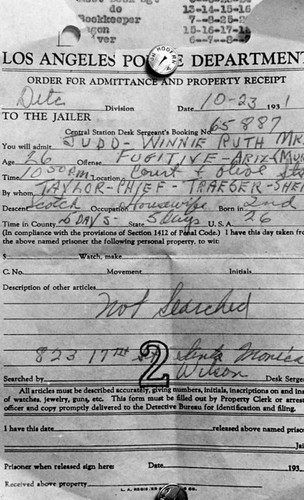 do 13-14-15-16
Bookkeeper 7--8-25-2
Wagon 15-16-17-1
iver 6--7--8--9
LOS ANGELES POLICE DEPARTMENT
ORDER FOR ADMITTANCE AND PROPERTY RECEIPT
Dete Division Date 10-23 1931
TO THE JAILER
Central Station Desk Sergeant's Booking No. 65887
You will admit JUDD - WINNIE RUTH MRS.
Age 26 Offense FUGITIVE - ARIZ (MUR
Time 10 50 PM Location Court & Olive Sts
By whom TAYLOR - CHIEF - TRAEGER - SHE
Descent Scotch Occupation Housewife Born in 2nd
Time in County 6 DAYS - State 5 Days U. S. A. 26
(In compliance with the provisions of Section 1412 of Penal Code.) I have this day taken from
the above named prisoner the following personal property, to wit:
$ Watch, make
C. No. Movement Initials
Description of other articles
Not Searched
823 17th St Santa Monica
2
Searched by Wilson Desk Serge
All articles must be described accurately, giving numbers, initials, inscriptions on and inside
of watches, jewelry, guns, etc. This form must be filled out by Property Clerk or arresting
officer and copy promptly delivered to the Detective Bureau for identification and filing.
I have this date released above named prison
Jail
Prisoner when released sign here: Date 193
Received above property